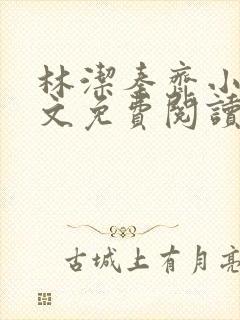 林潔秦齊小
文免費閱讀
古城上有月亮